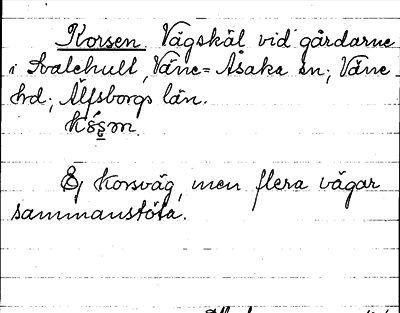 Korsen. Vägskäl vid gårdarne
i Svalehult, Väne=Åsaka sn; Väne
hd; Älfsborgs län.

Ej Korsväg, men flera vägar
sammanstöta.